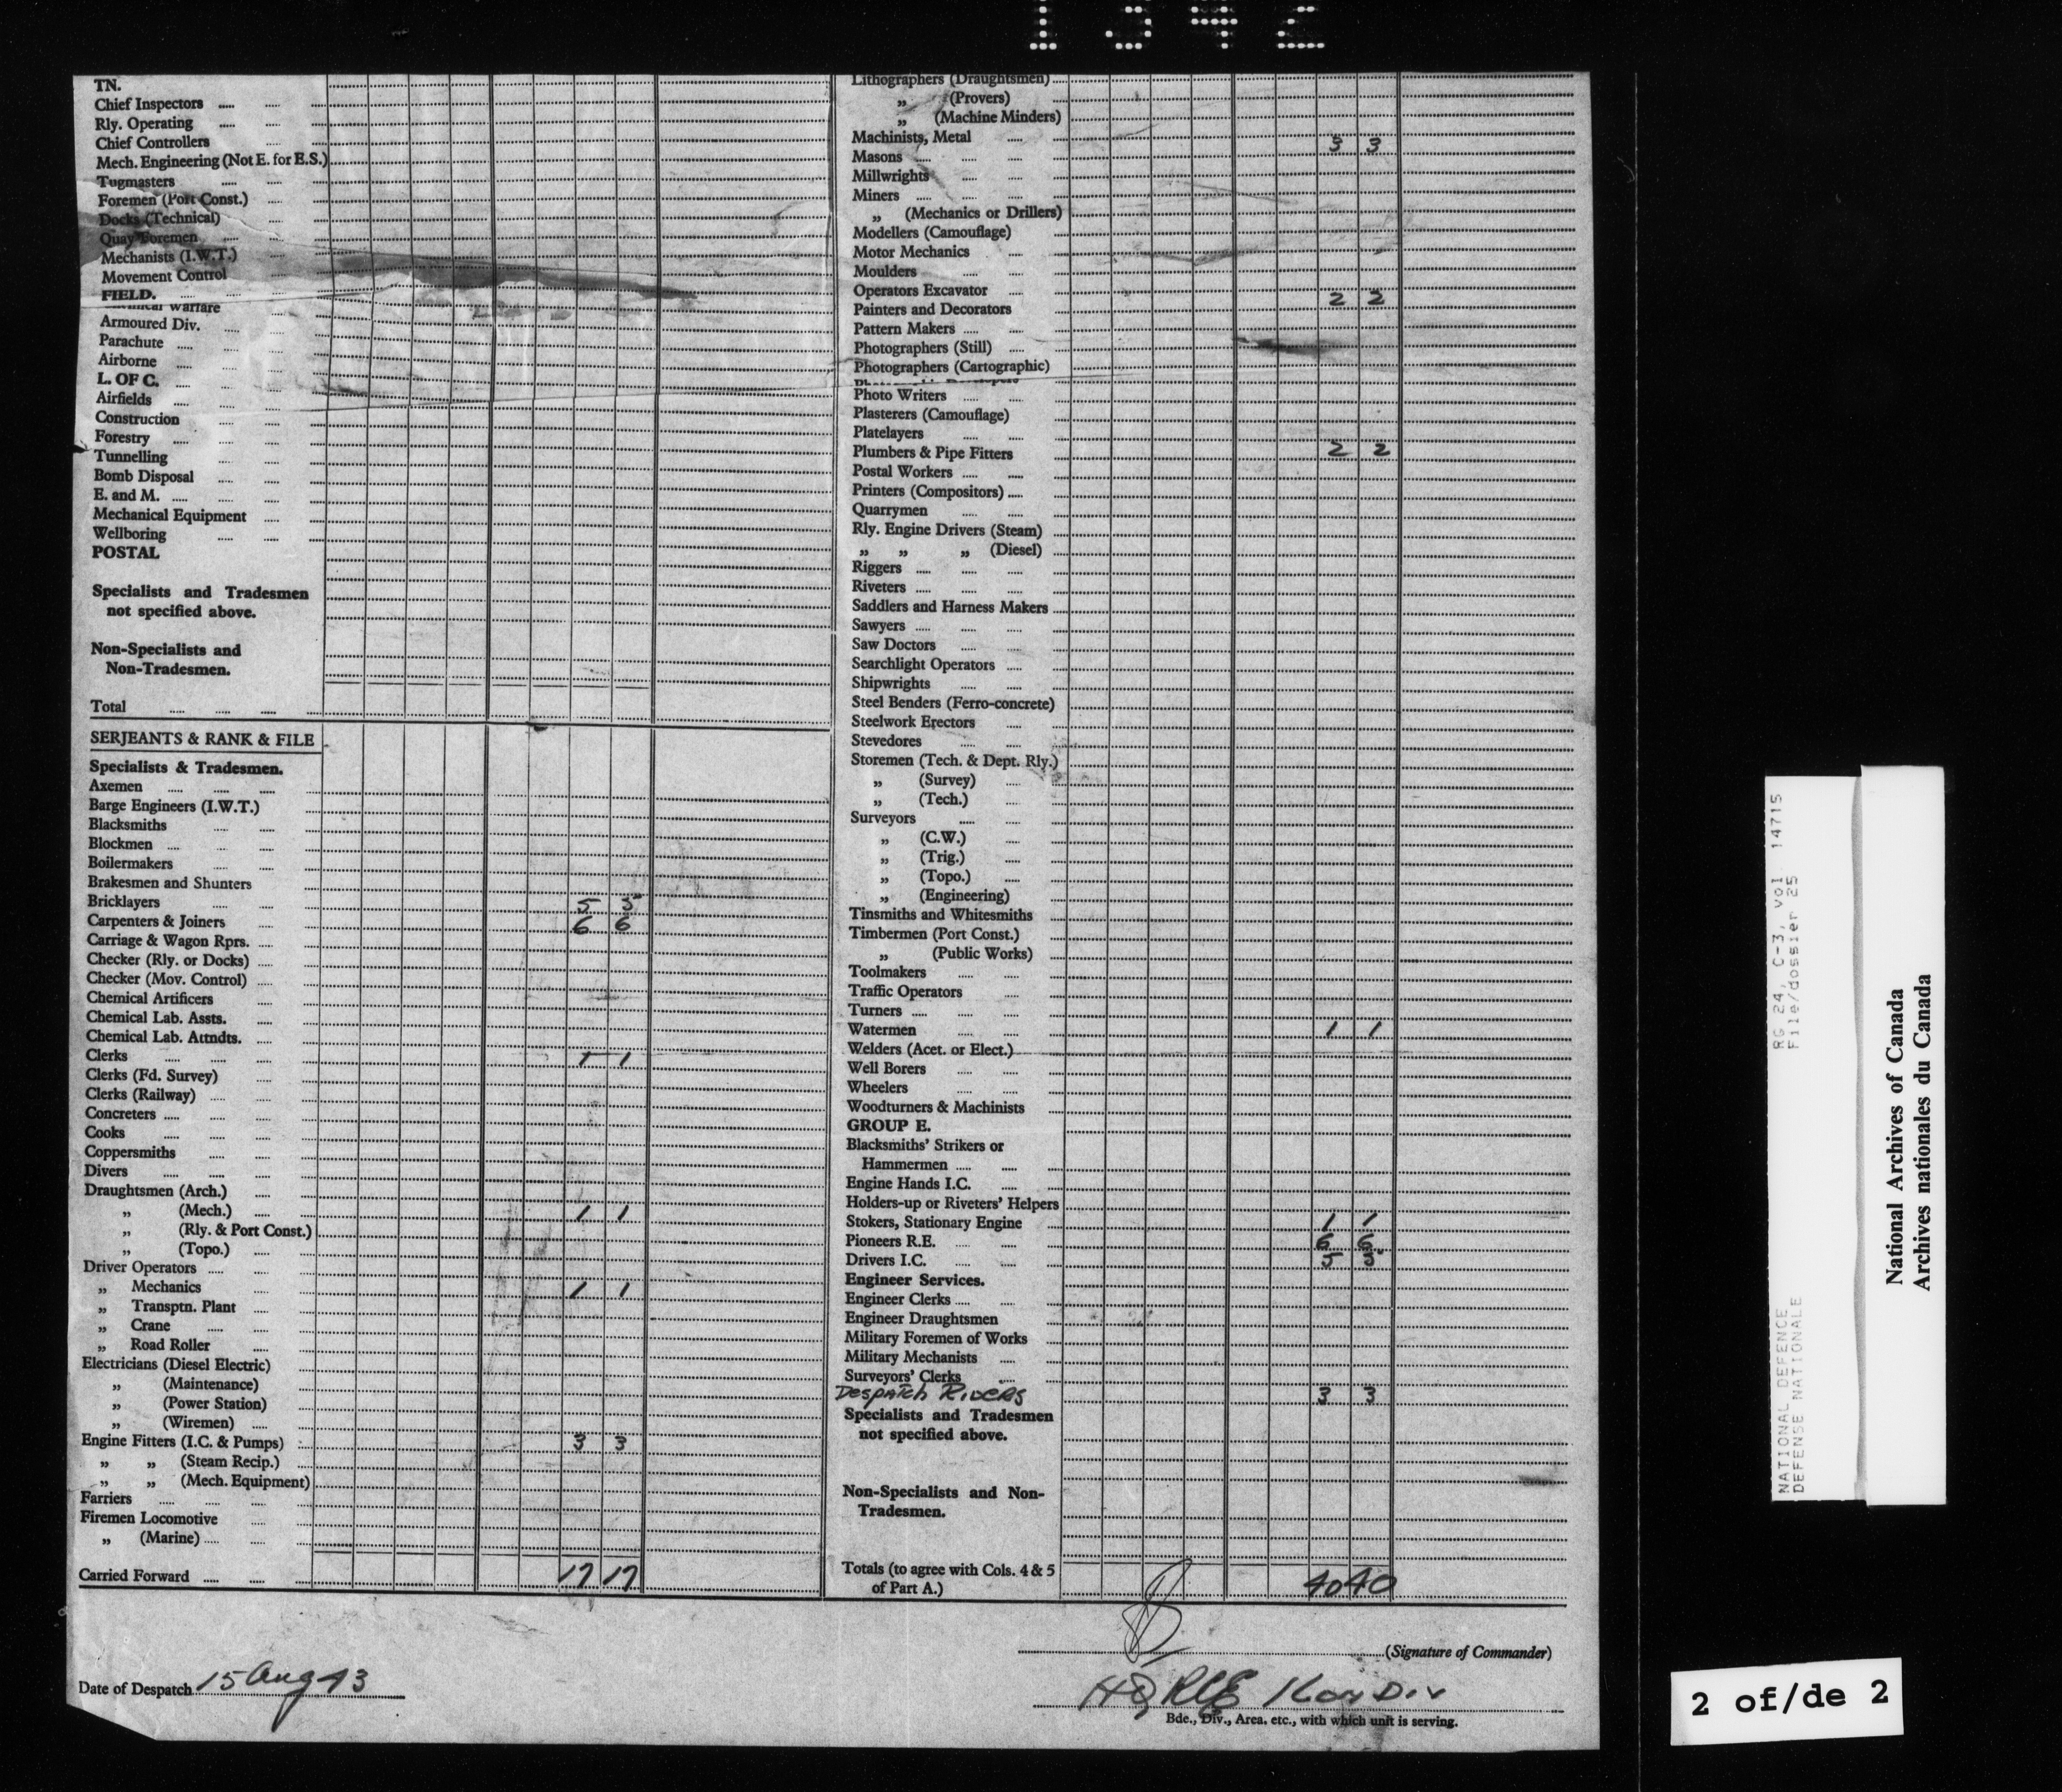 1342
TN.
Chief Inspectors
Rly. Operating
Chief Controllers
Mech. Engineering (Not E. for E.S.)
Tugmasters
Foremen (Port Const.)
Docks (Technical)
Quay Foremen
Mechanists (I.W.T.)
Movement Control
FIELD.
Warfare
Armoured Div.
Parachute
Airborne
L. OF C.
Airfields
Construction
Forestry
Tunnelling
Bomb Disposal
E. and M.
Mechanical Equipment
Wellboring
POSTAL
Specialists and Tradesmen
not specified above.
Non-Specialists and
Non-Tradesmen.
Total
SERJEANTS & RANK & FILE
Specialists & Tradesmen.
Axemen
Barge Engineers (I.W.T.)
Blacksmiths
Blockmen
Boilermakers
Brakesmen and Shunters
Bricklayers 5 5
Carpenters & Joiners 6 6
Carriage & Wagon Rprs.
Checker (Rly. or Docks)
Checker (Mov. Control)
Chemical Artificers
Chemical Lab. Assts.
Chemical Lab. Attndts.
Clerks 1 1
Clerks (Fd. Survey)
Clerks (Railway)
Concreters
Cooks
Coppersmiths
Divers
Draughtsmen (Arch.)
„ (Mech.) 1 1
„ (Rly. & Port Const.)
„ (Topo.)
Driver Operators
„ Mechanics 1 1
„ Transptn. Plant
„ Crane
„ Road Roller
Electricians (Diesel Electric)
„ (Maintenance)
„ (Power Station)
„ (Wiremen)
Engine Fitters (I.C. & Pumps) 3 3
„ „ (Steam Recip.)
„ „ (Mech. Equipment)
Farriers
Firemen Locomotive
„ (Marine)
Carried Forward 17 17
Lithographers (Draughtsmen)
„ (Provers)
„ (Machine Minders)
Machinists, Metal 3 3
Masons
Millwrights
Miners
„ (Mechanics or Drillers)
Modellers (Camouflage)
Motor Mechanics
Moulders
Operators Excavator 2 2
Painters and Decorators
Pattern Makers
Photographers (Still)
Photographers (Cartographic)
Photo Writers
Plasterers (Camouflage)
Platelayers
Plumbers & Pipe Fitters 2 2
Postal Workers
Printers (Compositors)
Quarrymen
Rly. Engine Drivers (Steam)
„ „ „ (Diesel)
Riggers
Riveters
Saddlers and Harness Makers
Sawyers
Saw Doctors
Searchlight Operators
Shipwrights
Steel Benders (Ferro-concrete)
Steelwork Erectors
Stevedores
Storemen (Tech. & Dept. Rly.)
„ (Survey)
„ (Tech.)
Surveyors
„ (C.W.)
„ (Trig.)
„ (Topo.)
„ (Engineering)
Tinsmiths and Whitesmiths
Timbermen (Port Const.)
„ (Public Works)
Toolmakers
Traffic Operators
Turners
Watermen 1 1
Welders (Acet. or Elect.)
Well Borers
Wheelers
Woodturners & Machinists
GROUP E.
Blacksmiths' Strikers or
Hammermen
Engine Hands I.C.
Holders-up or Riveters' Helpers
Stokers, Stationary Engine 1 1
Pioneers R.E. 6 6
Drivers I.C. 5 5
Engineer Services.
Engineer Clerks
Engineer Draughtsmen
Military Foremen of Works
Military Mechanists
Surveyors' Clerks
Despatch Riders 3 3
Specialists and Tradesmen
not specified above.
Non-Specialists and Non-
Tradesmen.
Totals (to agree with Cols. 4 & 5
of Part A.) 40 40
(Signature of Commander)
Date of Despatch 15 Aug 43
HQ RCE 1 Cdn Div
Bde., Div., Area. etc., with which unit is serving.
RG 24, C-3, vol 14715
File/dossier 25
NATIONAL DEFENCE
DEFENSE NATIONALE
National Archives of Canada
Archives nationales du Canada
2 of/de 2